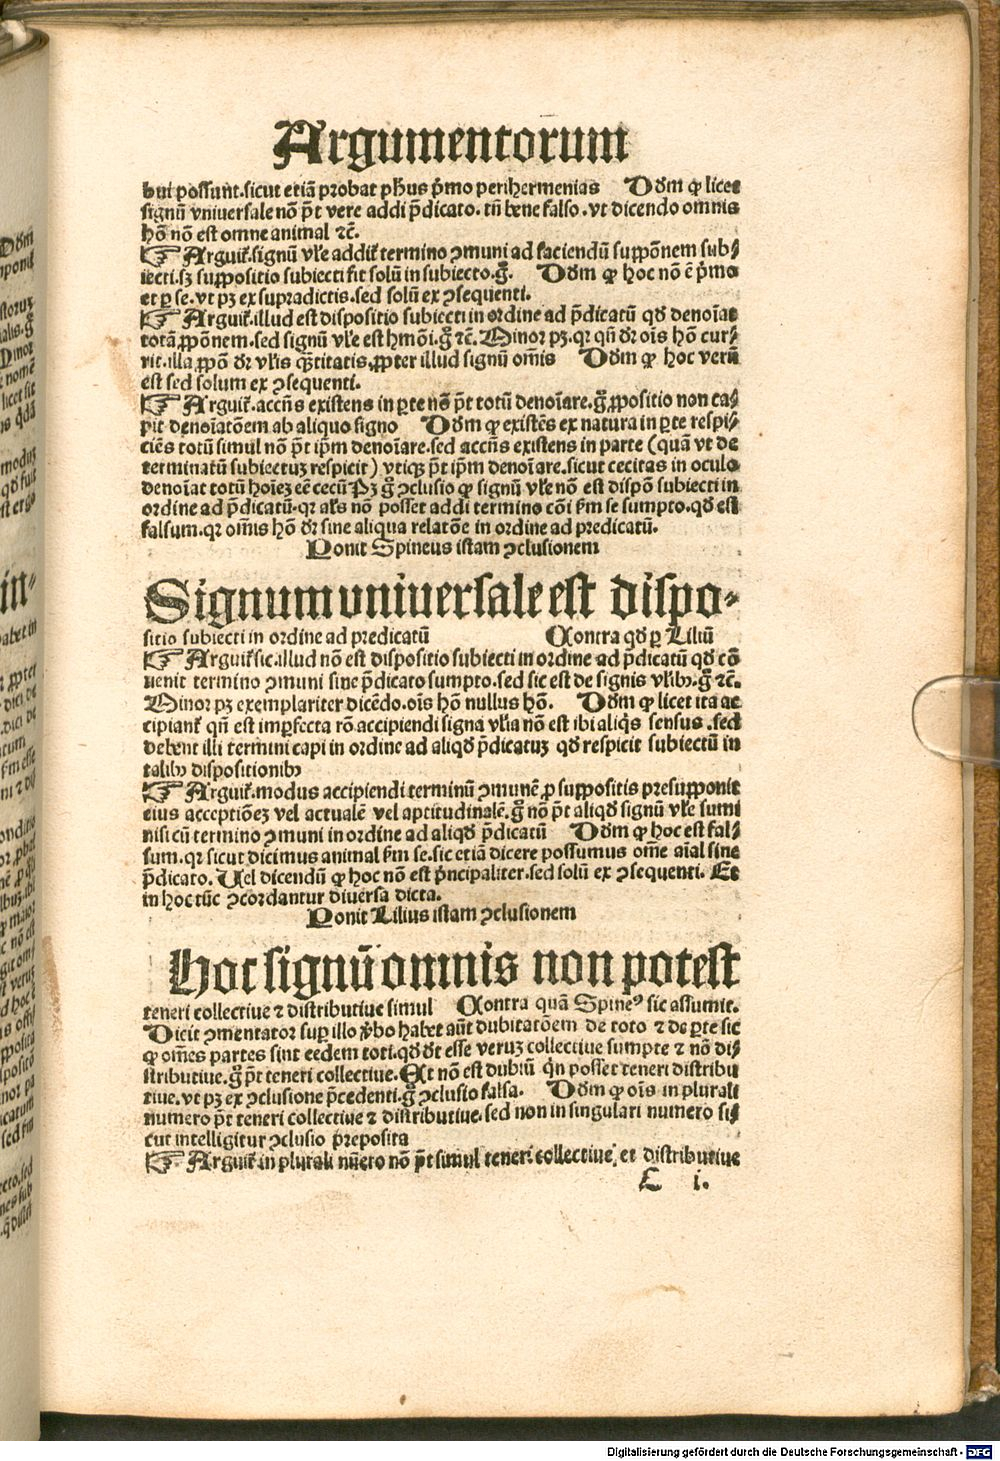 Argumentorum
bui possunt.sicut etiã probat pħus p̃mo perihermenias Dõm ꝙ licet
signũ vniuersale nõ p̃t vere addi p̃dicato.tñ bene falso.vt dicendo omnis
hõ nõ est omne animal ⁊c̃.
☞ Arguit̃.signũ vl̃e addit̃ termino ꝯmuni ad faciendũ suppõnem sub⸗
iecti.sꝫ suppositio subiecti fit solũ in subiecto.g̃. Dõm ꝙ hoc nõ ẽ p̃mo
et ꝑ se.vt pꝫ ex supradictis.sed solũ ex ꝯsequenti.
☞ Arguit̃.illud est dispositio subiecti in ordine ad p̃dicatũ qđ denoĩat
totã ꝓpõnem.sed signũ vl̃e est hmõi.g̃ ⁊c̃.Minor pꝫ.qꝛ qñ dr̃ oĩs hõ cur⸗
rit.illa ꝓpõ dr̃ vl̃is q̃titatis.ꝓpter illud signũ om̃is Dõm ꝙ hoc verũ
est sed solum ex ꝯsequenti.
☞ Arguit̃.accñs existens in ꝑte nõ p̃t totũ denoĩare.g̃ ꝓpositio non ca⸗
pit denoĩatõem ab aliquo signo Dõm ꝙ existẽs ex natura in ꝑte respi⸗
ciẽs totũ simul nõ p̃t ip̃m denoĩare.sed accñs existens in parte (quã vt de
terminatũ subiectuꝫ respicit) vtiqꝫ p̃t ip̃m denoĩare.sicut cecitas in oculo
denoĩat totũ hoĩeꝫ eẽ cecũ Pꝫ g̃ ꝯclusio ꝙ signũ vl̃e nõ est dispõ subiecti in
ordine ad p̃dicatũ.qꝛ al̃s nõ posset addi termino cõi ẜm se sumpto.qđ est
falsum.qꝛ om̃is hõ dr̃ sine aliqua relatõe in ordine ad predicatũ.
Ponit Spineus istam ꝯclusionem
Signum vniuersale est dispo⸗
sitio subiecti in ordine ad predicatũ Contra qđ ꝑ Liliũ
☞ Arguit̃ sic.illud nõ est dispositio subiecti in ordine ad p̃dicatũ qđ cõ
uenit termino ꝯmuni sine p̃dicato sumpto.sed sic est de signis vl̃ibꝫ.g̃ ⁊c̃.
Minor pꝫ exemplariter dicẽdo.oĩs hõ nullus hõ. Dõm ꝙ licet ita ac
cipiant̃ qñ est imꝑfecta rõ accipiendi signa vl̃ia nõ est ibi aliq̃s sensus.sed
debent illi termini capi in ordine ad aliqđ p̃dicatuꝫ qđ respicit subiectũ in
talibꝫ dispositionibꝫ
☞ Arguit̃.modus accipiendi terminũ ꝯmunẽ ꝓ suppositis presupponit
eius acceptiõeꝫ vel actualẽ vel aptitudinalẽ.g̃ nõ p̃t aliqđ signũ vl̃e sumi
nisi cũ termino ꝯmuni in ordine ad aliqđ p̃dicatũ Dõm ꝙ hoc est fal⸗
sum.qꝛ sicut dicimus animal ẜm se.sic etiã dicere possumus om̃e aĩal sine
p̃dicato.Uel dicendũ ꝙ hoc nõ est p̃ncipaliter.sed solũ ex ꝯsequenti.Et
in hoc tũc ꝯcordantur diuersa dicta.
Ponit Lilius istam ꝯclusionem
Hoc signũ omnis non potest
teneri collectiue ⁊ distributiue simul Contra quã Spineꝰ sic assumit.
Dicit ꝯmentator suꝑ illo ꝟbo habet aũt dubitatõem de toto ⁊ de ꝑte sic
ꝙ om̃es partes sint eedem toti.qđ đt esse veruꝫ collectiue sumpte ⁊ nõ di⸗
stributiue.g̃ p̃t teneri collectiue.At non est dubiũ q̃n posset teneri distribu
tiue.vt pꝫ ex ꝯclusione p̃cedenti.g̃ ꝯclusio falsa. Dõm ꝙ oĩs in plurali
numero p̃t teneri collectiue ⁊ distributiue.sed non in singulari numero si⸗
cut intelligitur ꝯclusio preposita
☞ Arguit̃ in plurali nũero nõ p̃t simul teneri collectiue et distributiue
i.
Digitalisierung gefördert durch die Deutsche Forschungsgemeinschaft - DFG